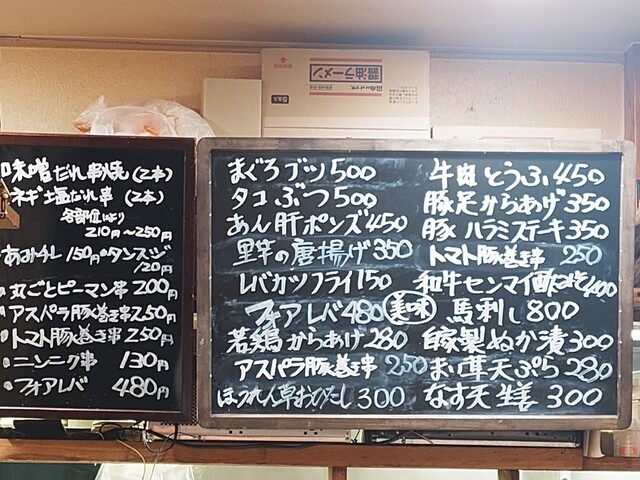 醤油ラーメン
味噌だれ串焼(2本)
ネギ塩だれ串(2本)
各部位により
210円〜250円
あみチレ150円•タンスジ
120円
丸ごとピーマン串200円
アスパラ豚巻き串250円
トマト豚巻き串250円
ニンニク串 130円
フォアレバ 480円
まぐろブツ500
タコぶつ500
あん肝ポンズ450
里芋の唐揚げ350
レバカツフライ150
フォアレバ480 美味
若鶏からあげ280
アスパラ豚巻き串 250
ほうれん草おひたし300
牛肉とうふ450
豚足からあげ350
豚ハラミステキ350
トマト豚巻き串 250
和牛センマイ酢みそ400
馬刺し800
自家製ぬか漬300
まい茸天ぷら280
なす天生姜300